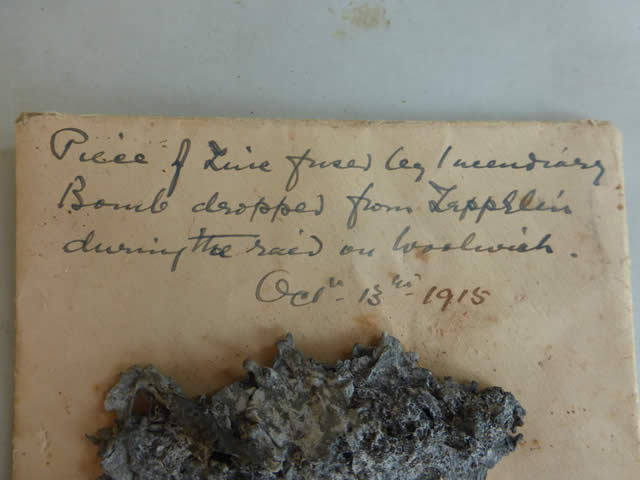 Piece of Zinc fused by Incendiary
Bomb dropped from Zeppelin
during the raid on Woolwich.
Octr. 13th. 1915